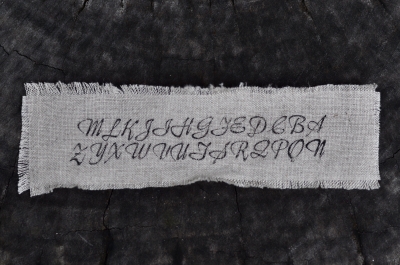 MLKJIHGFEDCBA
ZYXWVUTSRQPON